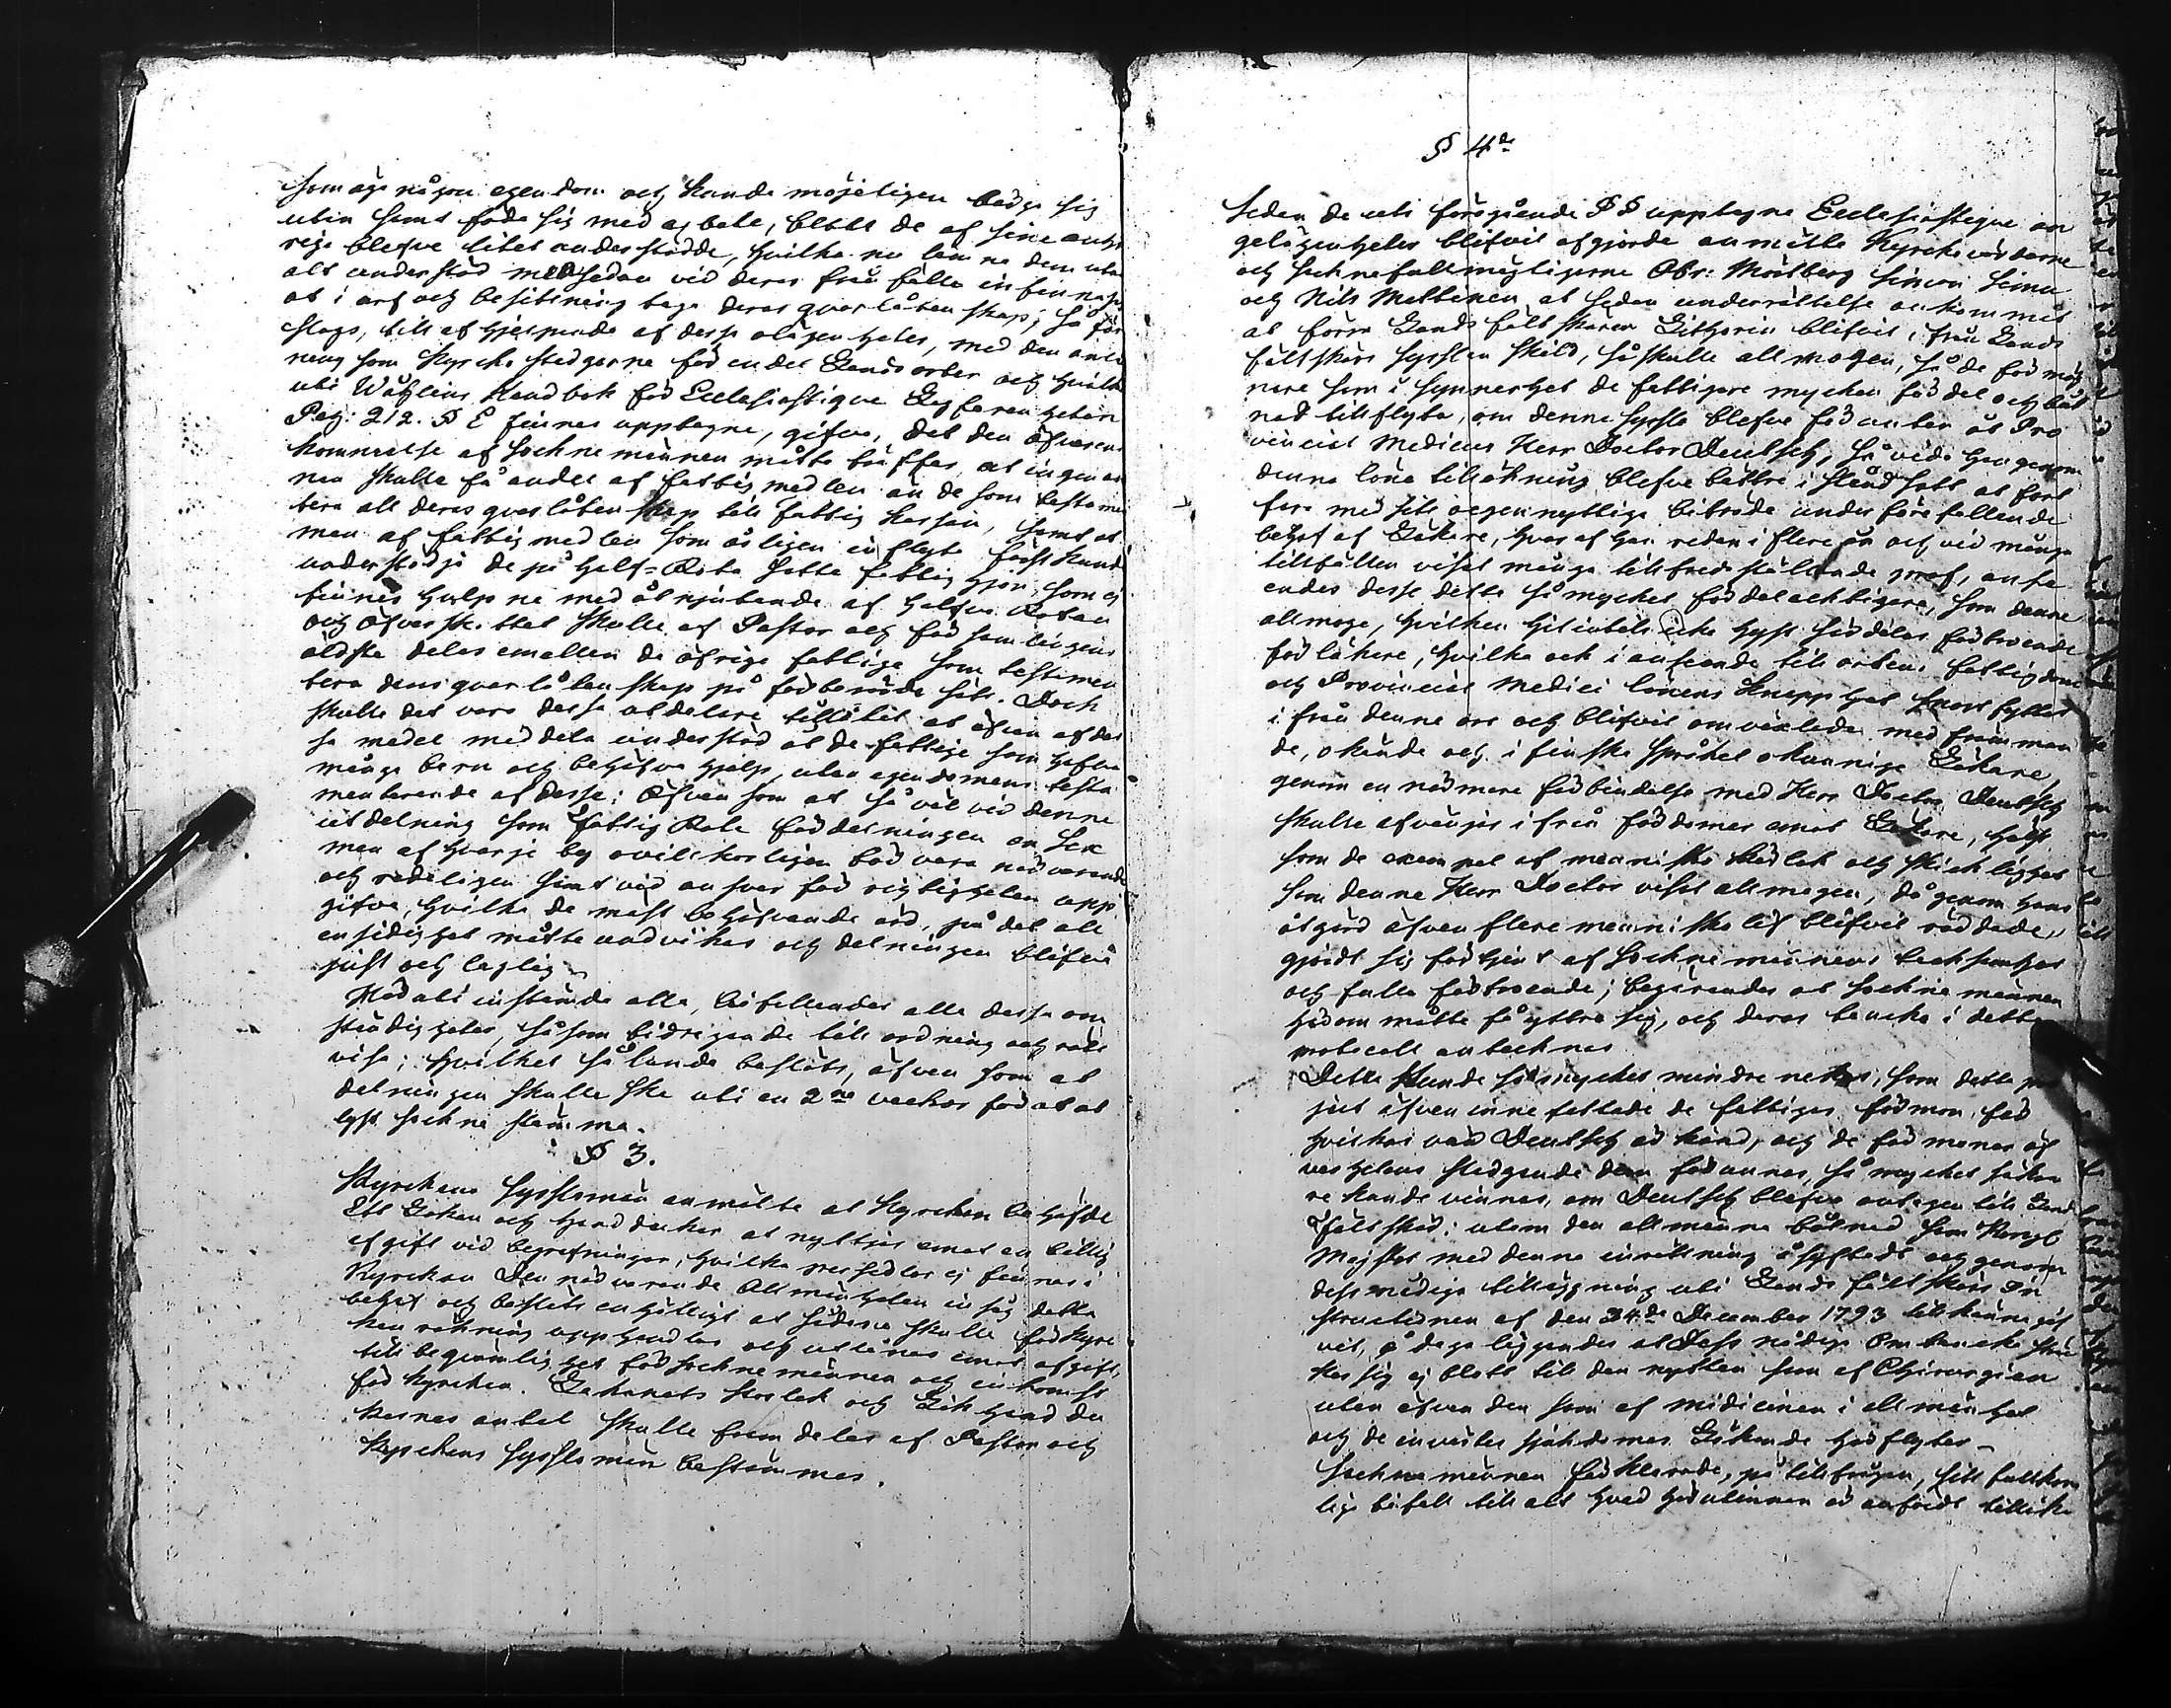 som äga någon egendom och kunde möjeligen bärga sig
utan samt föda sig med arbete, blott de af sine anhö
rige blefve litet understödde, hvilka nu lämna dem utan
alt understöd men sedan vid deras frånfälle infinna sig
at i arf och besittning taga deras qvarlåtenskap; så före
slogs, till afhjelpande af dessa olägenheter, med den anled
ning som Kyrcko stadgarne för andra Landsorter och hvilka
uti Wåhlins Handbok för Ecclesiastique Lagfarenheten
Pag: 212. § E finnes upptagne, gifva, det den öfverens
kommelse af Sochnemännen måtte träffas, at ingen an
nan skulle få andel af fattigmedlen än de som testamen
tera alt deras qvarlåtenskap till fattig Kassan, samt at
man af fattigmedlen som årligen inflyta först skulle
understödja de på half-Rota satta fattighjon, som ej
finnes hulpne med åtnjutande af halfva Rotan
och öfverskottet skulle af Pastor och församlingens
äldste delas emellan de öfrige fattige som testamen
tera dens qvarlåtenskap på förberörde sätt. Dock
skulle det vara dessa utdelare tillåtit at äfven af des
sa medel meddela understöd åt de fattige som hafva
många barn och behöfva hjelp, utan egendomens testa
menterande af desse; Äfven som at så väl vid denne
utdelning som fattig Rote fördelningen en Sex
man af hvarje by ovilkorligen bör vara närvarande
och redeligen samt vid ansvar för rigtigheten upp
gifva, hvilka de mäst behöfvande äro, på det all
ensidighet måtte undvikas och delningen blifva
just och laglig.
Härati instämde alla, bifallandes alla dessa om
ständigheter, såsom bidragande till ordning och rätt
visa; hvilket således beslöts, äfven som at
delningen skulle ske uti en 2ne veckor förut ut
lyst sochne stämma.
§ 3.
Kyrckans Sysslomän anmälte at Kyrckan behöfde
Ett Lakan och Handdukar at nyttjas emot en billig
afgift vid begrafningar, hvilka persedlar ej finnas i
Kyrckan. Den närvarande Allmänheten insåg detta
behof och beslöts enhälligt at sådana skulle för Kyrc
kans räkning upphandlas och utlånas emot afgift,
till beqvämlighet för sochnemännen och inkomst
för Kyrckan. Lakanets storlek och Lik handdu
karnes antal skulle framdeles af Pastor och
Kyrckans Sysslomän bestämmas.
§ 4de
Sedan de uti föregående §§ upptagne Ecclesiastique an
gelägenheter blifvit afgjorde anmälte Kyrckovärdarne
och Sochnefullmägtigerne Abr: Mårtberg Simon Simu
och Nils Mattinen at sedan underrättelse ankommit
at förre Landsfältskären Lithovin blifvit ifrån Lands
fältskärs sysslan skild, så skulle allmogen, så de förmög
nare som i synnerhet de fattigare mycken fördel och båt
nad tillflyta, om denne syssla blefve förunten åt Pro
vincial Medicus Herr Doctor Deutsch, så vida han genom
denna löne tillökning blefve bättre i stånd satt at fort
fara med sitt oegennyttiga biträde under förefallende
behof af Läkare, hvaraf han redan i flere år och vid många
tillfällen visat många tillfredsställande prof, anse
endes desse dette så mycket fördelachtigare, som denne
allmoge, hvilken hitintils icke hyst särdeles förtroende
för läkare, hvilka ock i anseende till ortens fattigdom
och Provincial Medici lönens knapphet snart flyttat
ifrån denne ort och blifvit omväxlade med främman
de, okände och i finska språket okunnige Läkare,
genom en närmare förbindelse med Herr Doctor Deutsch
skulle afvänjes ifrån fördomar emot Läkare, hälst
som de exempel af menniskokärlek och skicklighet
som denne Herr Doctor visat allmogen, då genom hans
åtgärd äfven flere menniskolif blifvit räddade,
gjordt sig förtjent af Sochnemännens tacksamhet
och fulla förtroende; begärandes at Sochnemännen
härom måtte få yttra sig, och deras tancka i detta
protocoll antecknas.
Detta kunde så mycket mindre nekas, som detta pro
ject äfven innefattade de fattigas förmon för
hvilkas vård Deutsch är känd, och de förmoner öf
verhetens stadgande dem förunnar, så mycket säkra
re kunde vinnas, om Deutsch blefve antagen till Lands
Fältskär: utom den allmänna båtnad som Kongl
Majestet med denne inrättning åsyftadt och genom
dess nådiga tillägning uti Lands fältskärs In
structionen af den 24de December 1793 tillkännagif
vit, å daga läggandes at Dess nådiga Omtancka sträc
ker sig ej blott till den nyttan som af Chirurgien
utan äfven den som af medicinen i allmänhet
och de invärtes sjukdomars Läkande härflyter.
Sochnemännen förklarade, på tillfrågan, sitt fullkom
liga bifall till alt hvad härutinnan är anfördt tillika